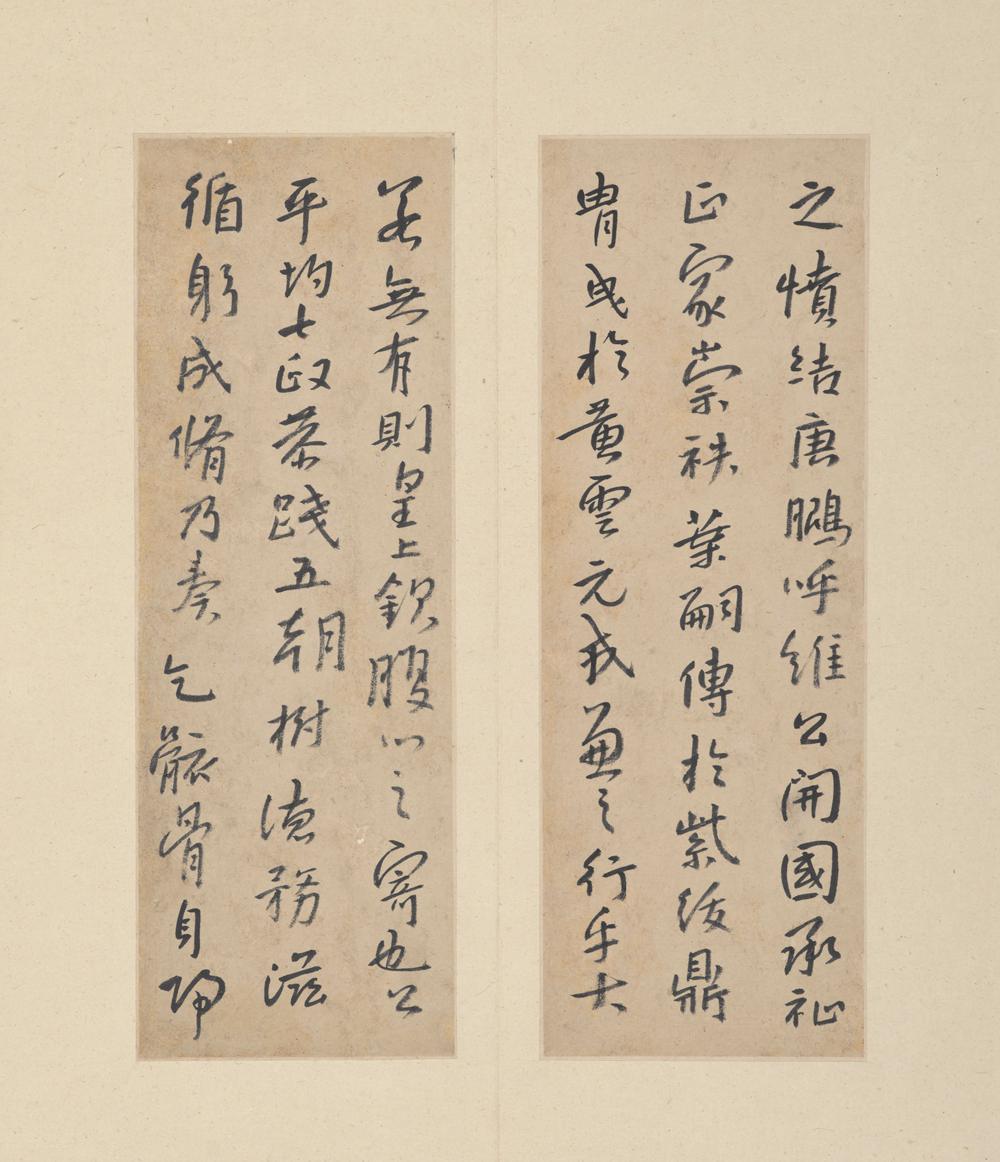 之憤結唐鵬呼維公開國承祉
正家崇袟葉嗣傳於紫綬鼎
胄成於黃雲元我兼之行乎大
若無有則皇上欽腹心之寄也公
平均七政恭踐五朝樹德務滋
循躬成脩乃奏乞骸骨自歸